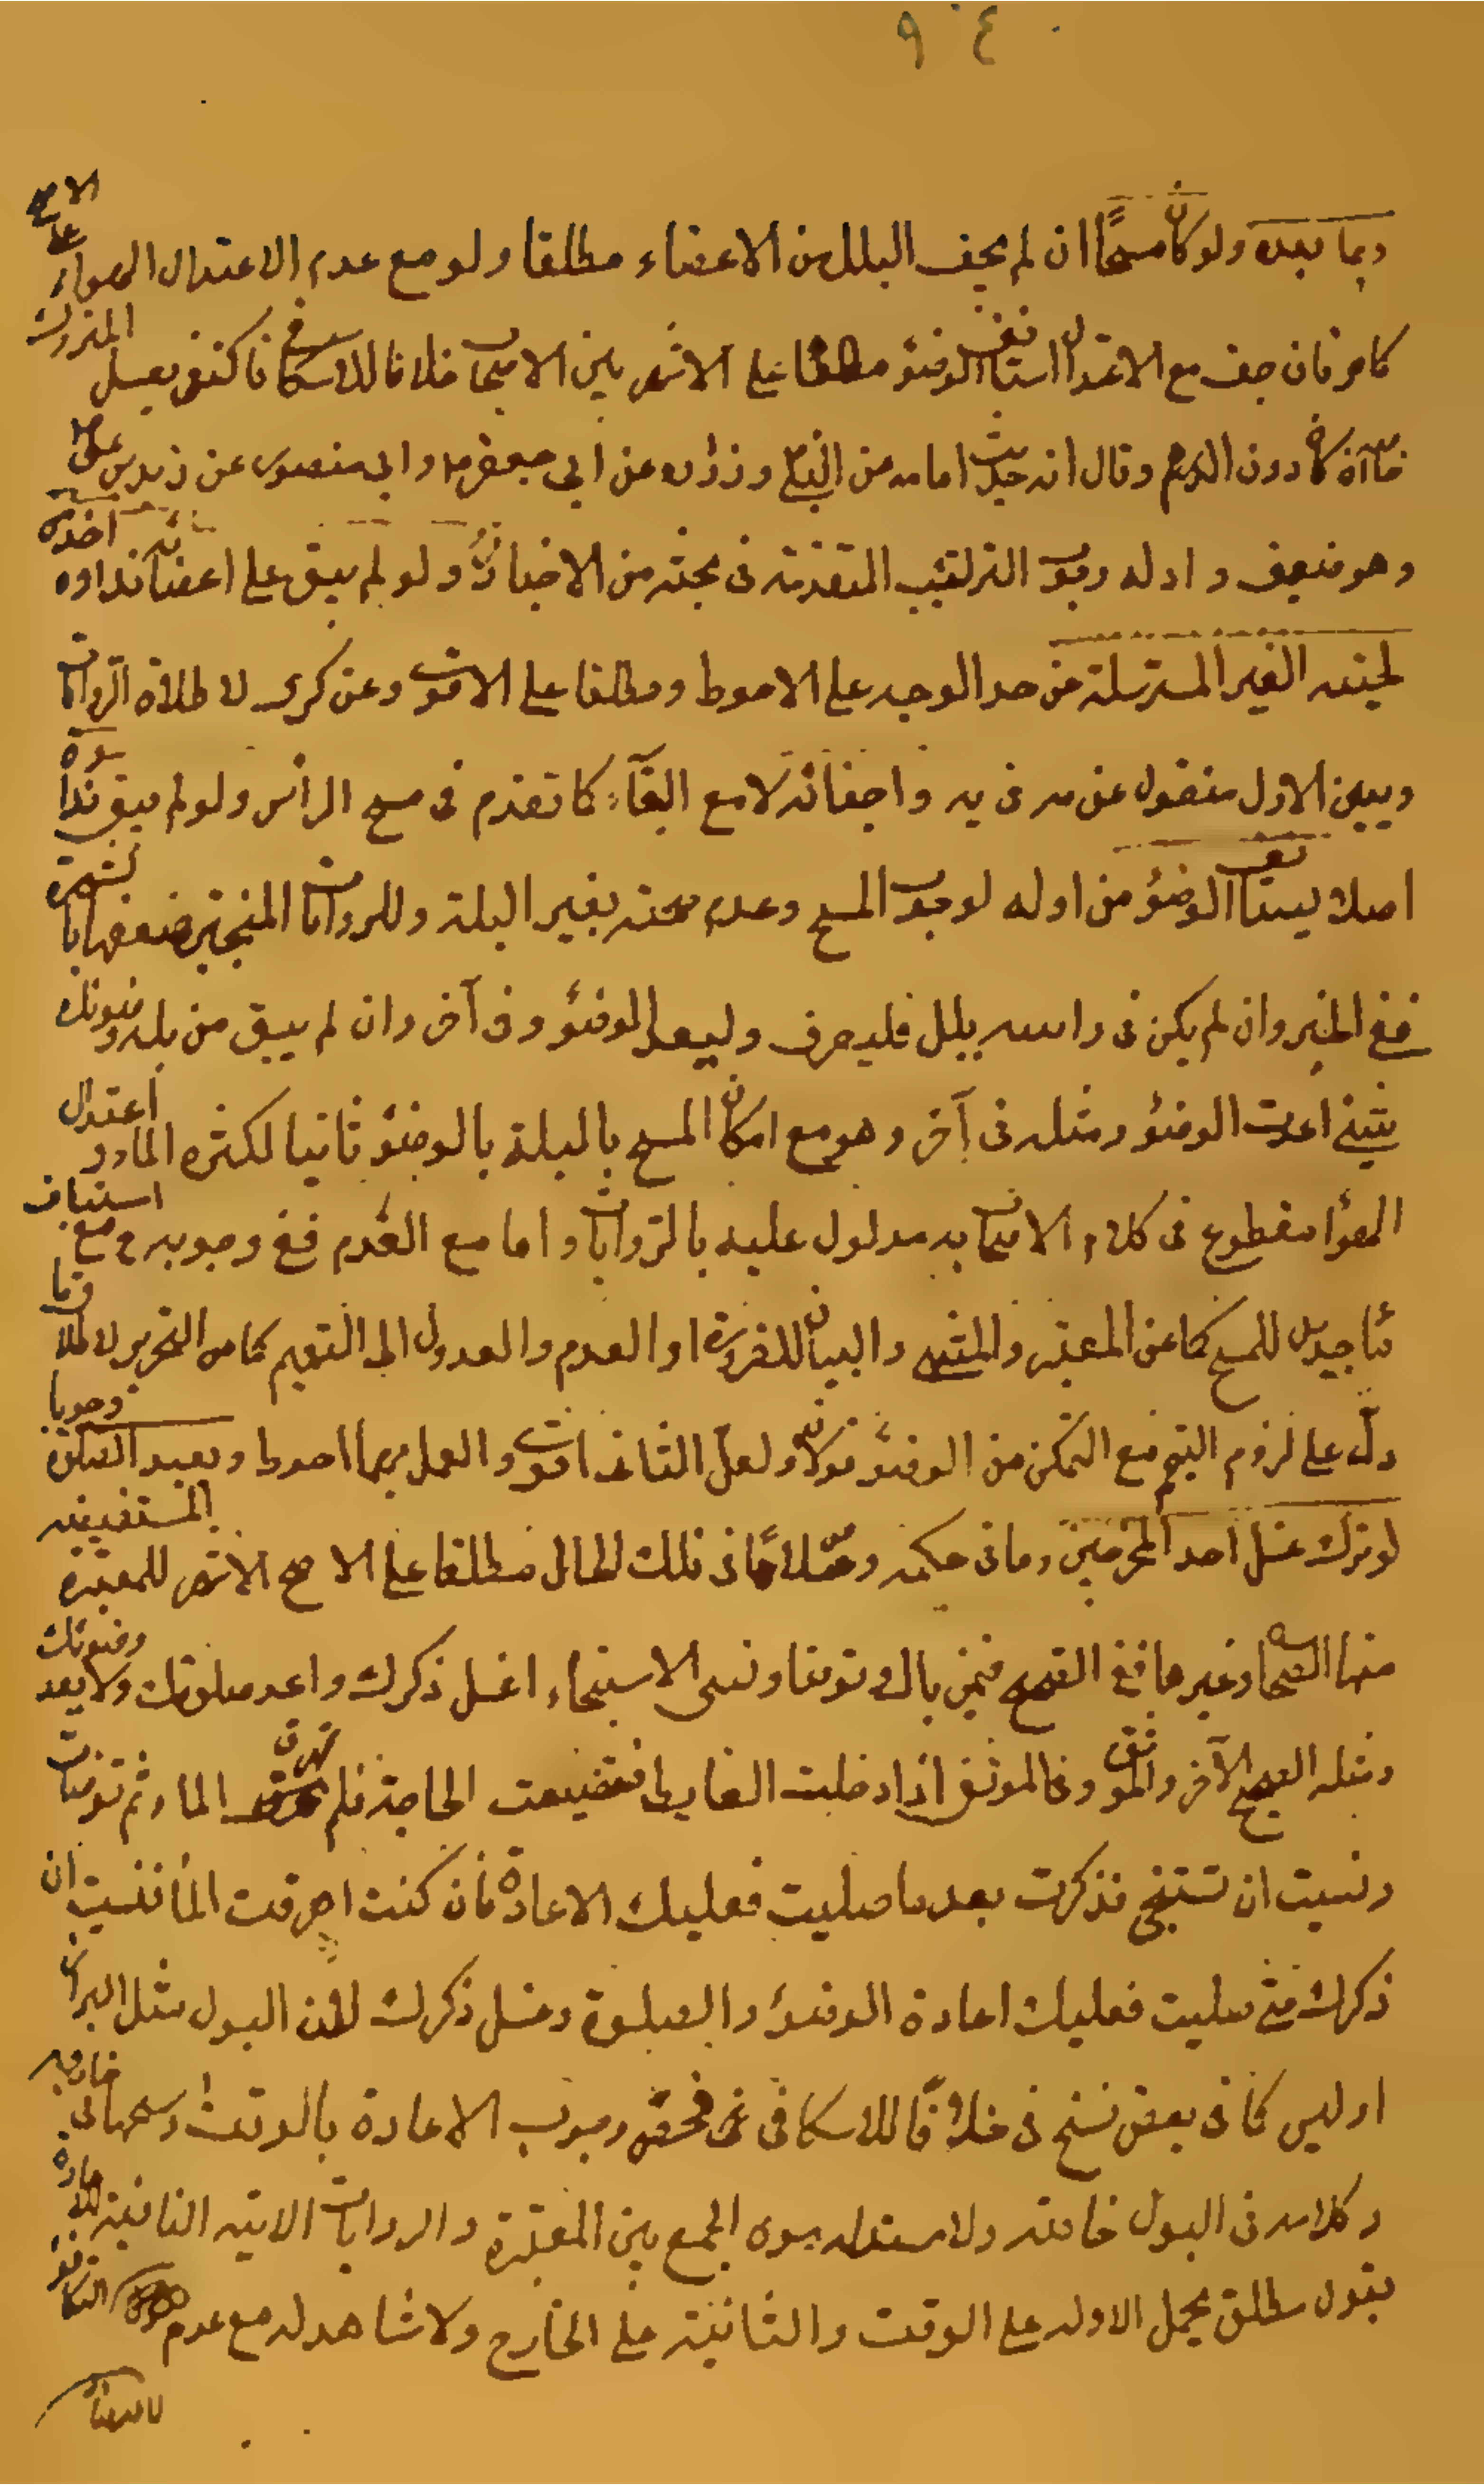 ٩٤
وبما بعده ولو كان مسحًا ان لم يجف البلل من الاعضاء مطلقا ولو مع عدم الاعتدال الهواء على الاصح
كما مر فان جف مع الاعتدال استانف الوضؤ مطلقا على الاشهر بين الاصحاب خلافا للاسكافي فاكتفى بغسل المتروك
خاصة اذا كان دون الدرهم وقال انه حديث امامه عن النبي وزراره عن ابي جعفر وابي منصور عن زيد بن علي
وهو ضعيف وادله وجوب الترتيب المتقدمة في بحثه من الاخبار ترده ولو لم يبق على اعضائه نداوه اخذه من
لحيته الغير المسترسلة من حد الوجه على الاحوط ومطلقا على الاقوى وعن كرى لاطلاق الروايات
ويبين الاول منقول عن مه في يه واجفانه لا مع البقاء كما تقدم في مسح الراس ولو لم يبق نداوة
اصلا يستانف الوضؤ من اوله لوجوب المسح وعدم صحته بغير البلة وللروايات المنجبر ضعفها بالشهرة
ففي الخبر وان لم يكن في راسه بلل فلينصرف وليعد الوضؤ وفى آخر وان لم يبق من بلة وضوئك
شيئ اعدت الوضؤ ومثله في آخر وهو مع امكان المسح بالبلة بالوضؤ ثانيا لكثره الماء او اعتدال
الهوا مقطوع في كلام الاصحاب مدلول عليه بالروايات واما مع العدم ففي وجوبه ح مع استيناف
ماء جديد للمسح كما عن المعتبر والمنتهى والبيان للضرورة او العدم والعدول الى التيمم كما عن التحرير لاطلاق ما
دل على لزوم التيمم مع التمكن من الوضؤ قولان ولعل الثانى اقوى والعمل بهما احوط ويعيد الصلوة وجوبا
لو ترك غسل احد المخرجين وما فى حكمه وصلى في تلك الحال مطلقا على الاصح الاشهر للمعتبرة المستفيضه
منها الصحاح وغيرها ففي الصحيح فيمن بال وتوضا ونسى الاستنجاء اغسل ذكرك واعد صلوتك ولا تعد وضوئك
ومثله الصحيح الآخر والموثق وفى الموثق اذا دخلت الغايط فقضيت الحاجة فلم تهرق الماء ثم توضات
ونسيت ان تستنجي فذكرت بعد ما صليت فعليك الاعادة فان كنت اهرقت الماء فنسيت ان
ذكرك حتى صليت فعليك اعادة الوضوء والصلوة وغسل ذكرك لان البول مثل البراز
او ليس كما في بعض نسخ فى خلافًا للاسكافى فخص وجوب الاعادة بالوقت واستحبها في خارجه
وكلامه في البول خاصة ولا مستند له سوى الجمع بين المعتبرة والروايات الاتيه النافية للاعادة
بقول مطلق بحمل الاوله على الوقت والثانية على الخارج ولا شاهد له مع عدم التكافؤ